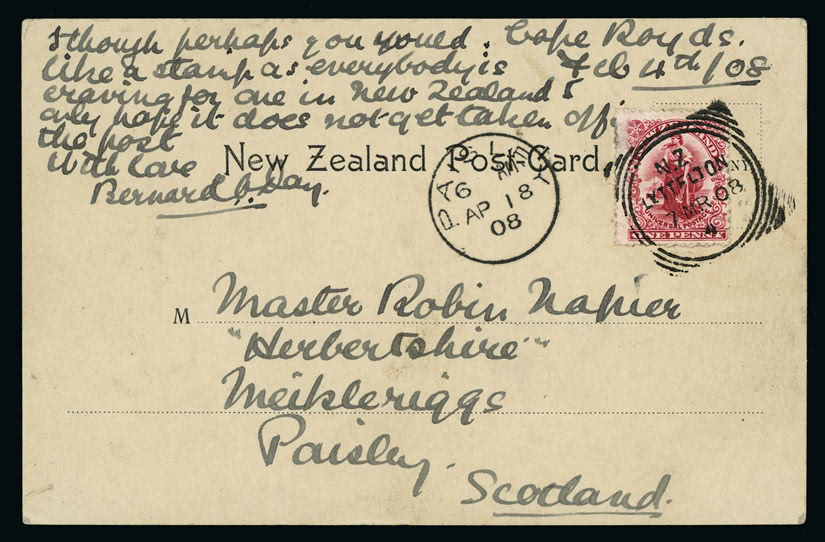 I though perhaps you would. Cape Royds.
like a stamp as everybody is Feb 4th/08
craving for one in New Zealand &
only hope it does not get taken off
the post
With love
Bernard C. Day.
New Zealand Post Card.
PAISLEY
6 AM
AP 18
08
NEW ZEALAND
UNIVERSAL POSTAGE
ONE PENNY
N.Z
LYTTELTON
7 MR 08
M Master Robin Napier
"Herbertshire"
Meikleriggs
Paisley.
Scotland.